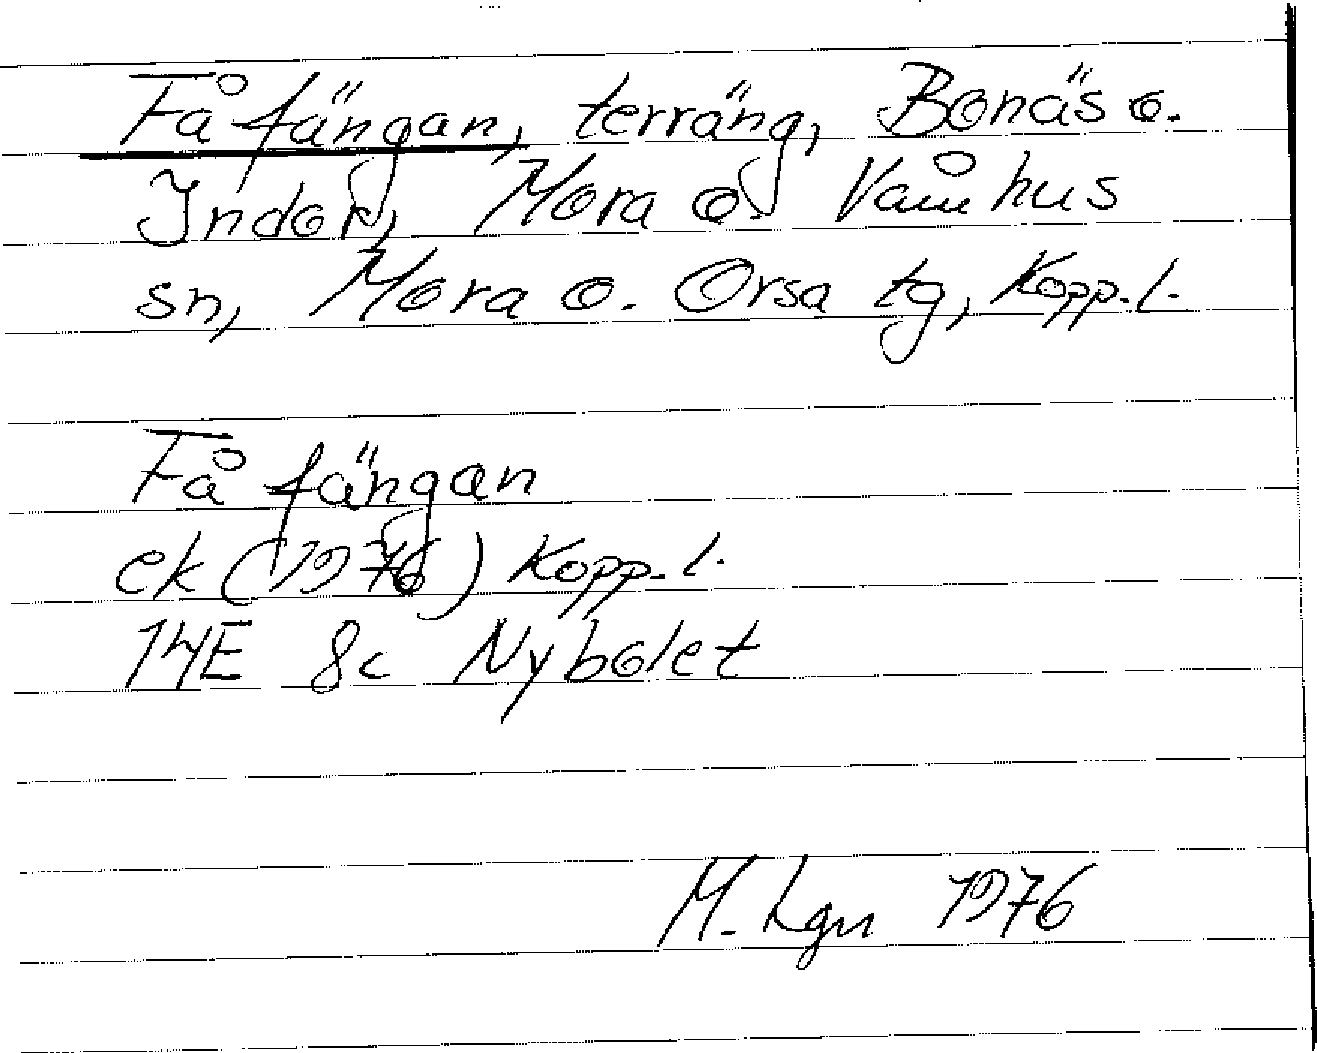 Få fängan, terräng, Bonäs o.
Indor, Mora o. Våmhus
sn, Mora o. Orsa tg, Kopp. l.
Få fängan
ek (1976) Kopp. l.
14E 8c Nybolet
M. Lgn 1976